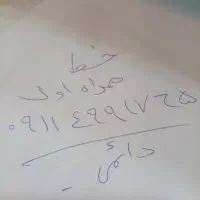 خط
همراه اول
۰۹۱۱ ۴۹۹۱۷۲۵
دائمی